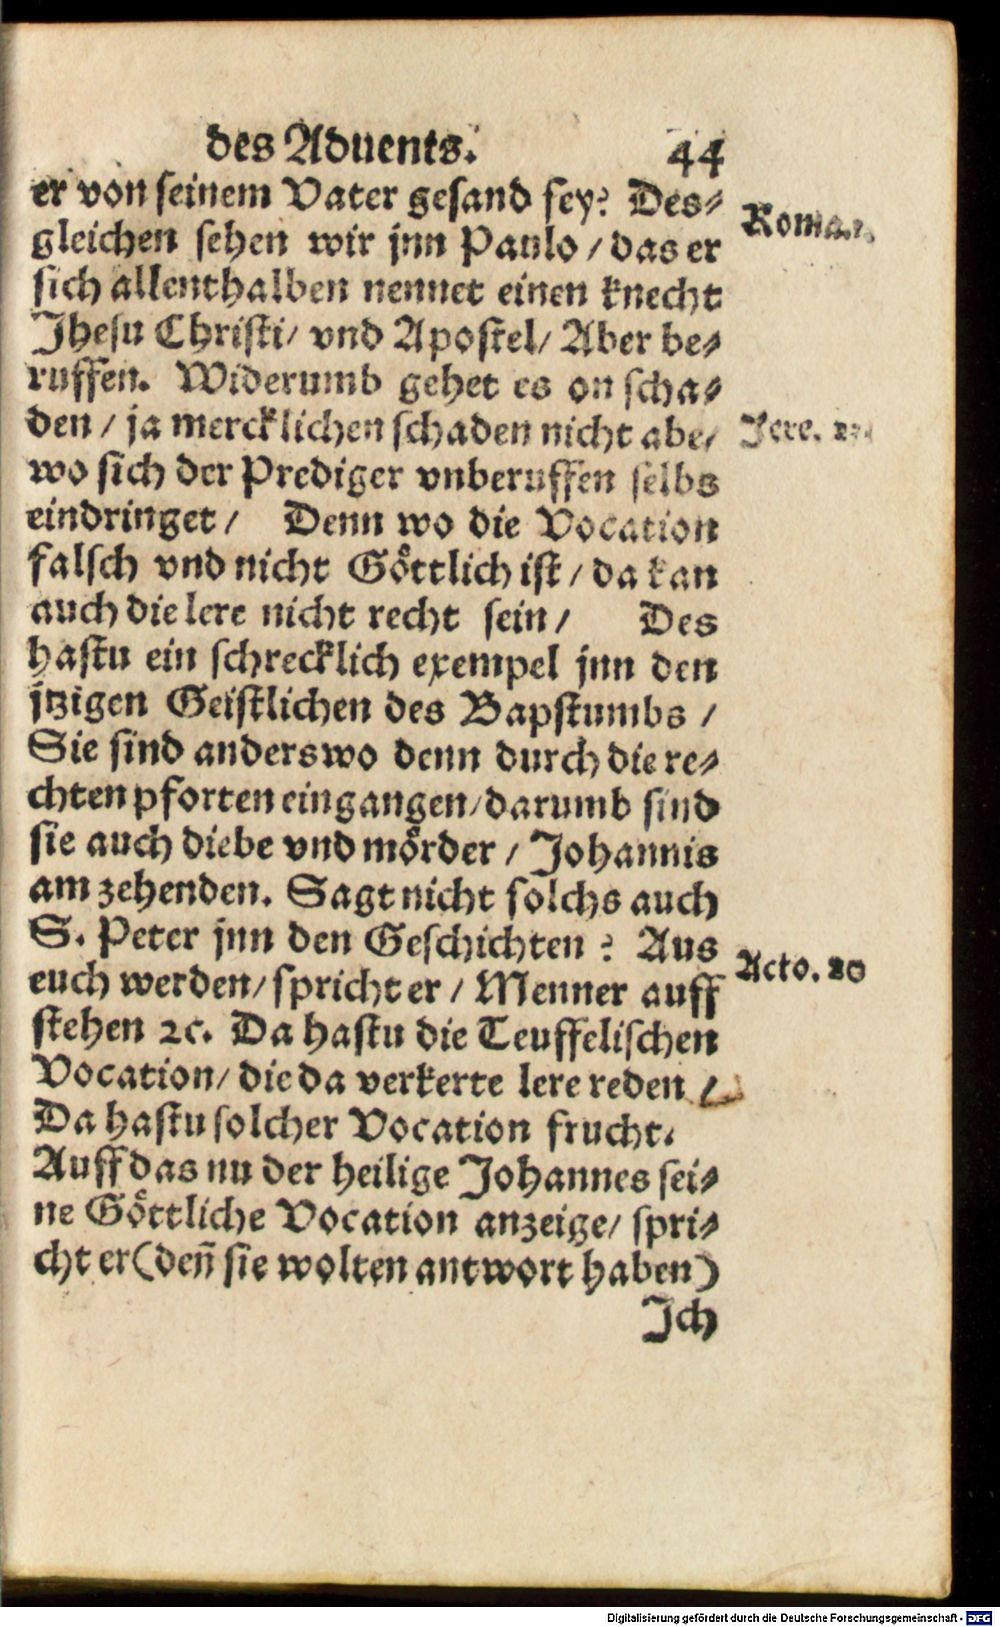 des Aduents. 44
er von seinem Vater gesand sey? Des⸗
Roma. 1.
gleichen sehen wir jnn Paulo / das er
sich allenthalben nennet einen knecht
Jhesu Christi/ vnd Apostel/ Aber be⸗
ruffen. Widerumb gehet es on scha⸗
den / ja mercklichen schaden nicht abe/
Jere.
wo sich der Prediger vnberuffen selbs
eindringet / Denn wo die Vocation
falsch vnd nicht Göttlich ist / da kan
auch die lere nicht recht sein / Des
hastu ein schrecklich exempel jnn den
jtzigen Geistlichen des Bapstumbs /
Sie sind anderswo denn durch die re⸗
chten pforten eingangen/ darumb sind
sie auch diebe vnd mörder / Johannis
am zehenden. Sagt nicht solchs auch
S. Peter jnn den Geschichten ? Aus
Acto. 20
euch werden/ spricht er / Menner auff
stehen ꝛc. Da hastu die Teuffelischen
Vocation/ die da verkerte lere reden /
Da hastu solcher Vocation frucht.
Auff das nu der heilige Johannes sei⸗
ne Göttliche Vocation anzeige/ spri⸗
cht er (deñ sie wolten antwort haben)
Jch
Digitalisierung gefördert durch die Deutsche Forschungsgemeinschaft - DFG